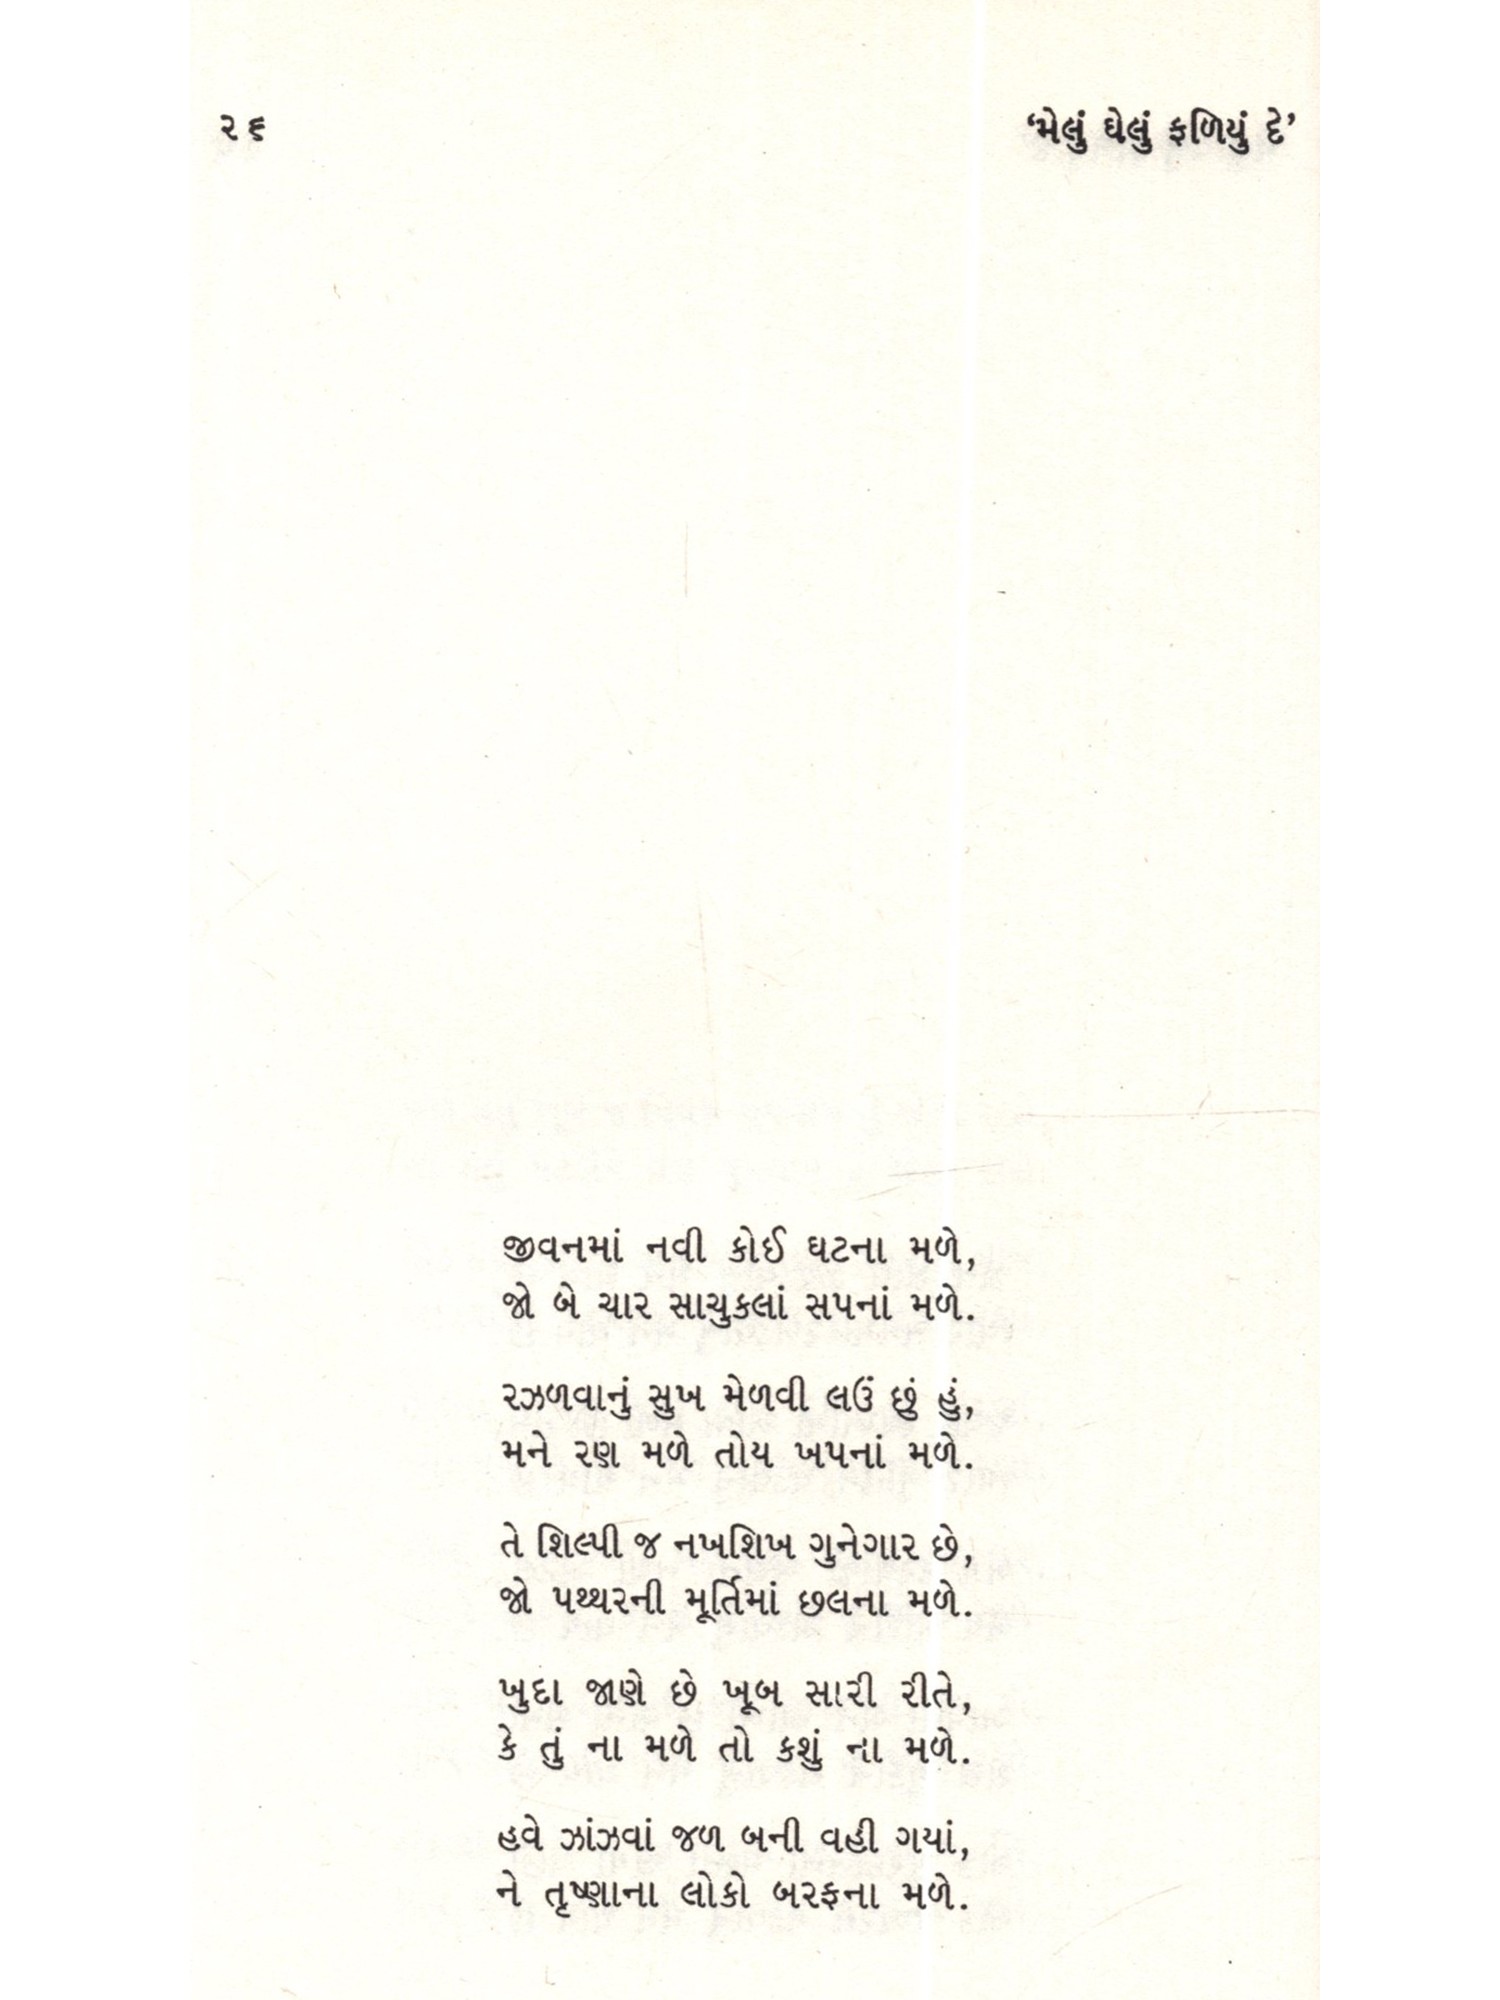 ૨૬ ‘મેલું ઘેલું ફળિયું દે’
જીવનમાં નવી કોઈ ઘટના મળે,
જો બે ચાર સાચુકલાં સપનાં મળે.
રઝળવાનું સુખ મેળવી લઉં છું હું,
મને રણ મળે તોય ખપનાં મળે.
તે શિલ્પી જ નખશિખ ગુનેગાર છે,
જો પથ્થરની મૂર્તિમાં છલના મળે.
ખુદા જાણે છે ખૂબ સારી રીતે,
કે તું ના મળે તો કશું ના મળે.
હવે ઝાંઝવાં જળ બની વહી ગયાં,
ને તૃષ્ણાના લોકો બરફના મળે.